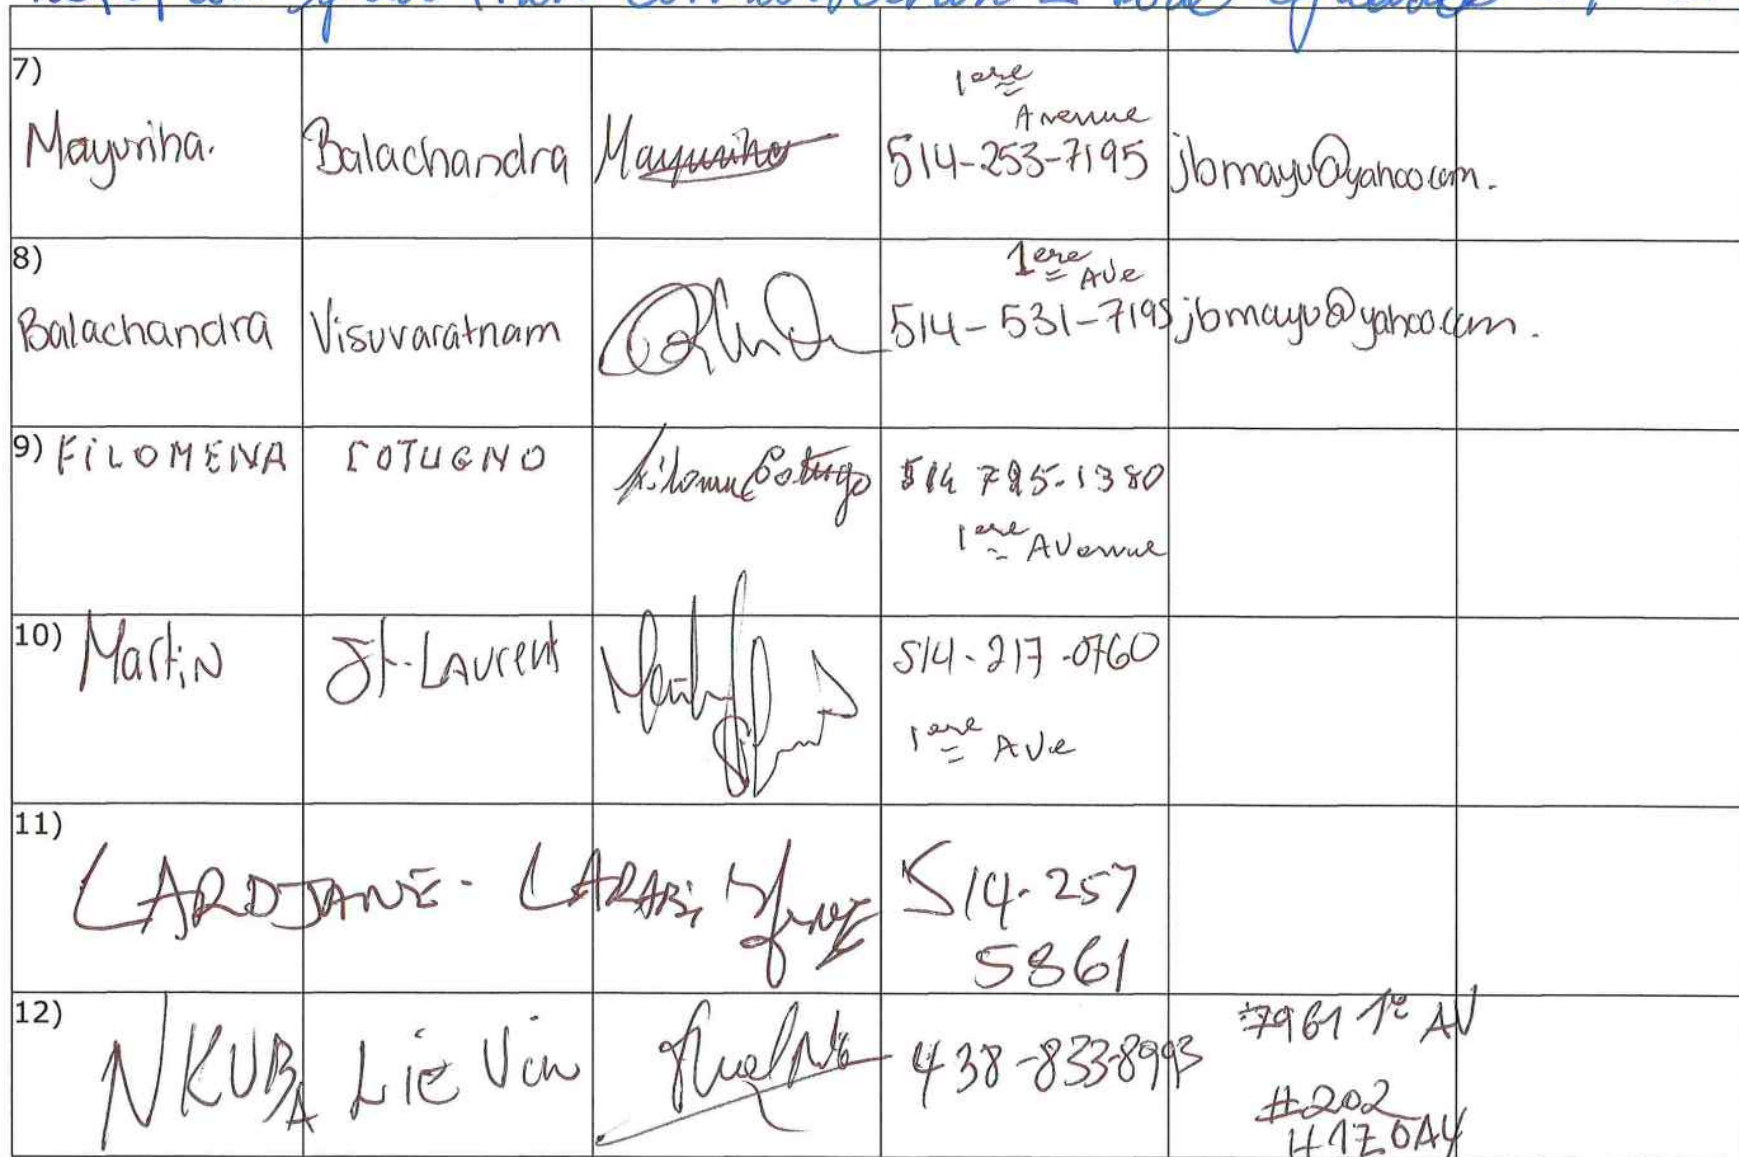 7)
Mayuriha. Balachandra Mayuriha 1ere Avenue
514-253-7195 jbmayu@yahoo.com.
8)
1ere Ave
Balachandra Visuvaratnam 514-531-7195 jbmayu@yahoo.com.
9) FiLOMENA COTUGNO 514 795-1380
1ere Avenue
10) Martin St-Laurent 514-217-0760
1ere Ave
11)
LARDJANE - LARABi 514-257
5861
12)
NKUBA LiE Vin 438-833-8993 7961 1e AV
#202
H1Z 0A4